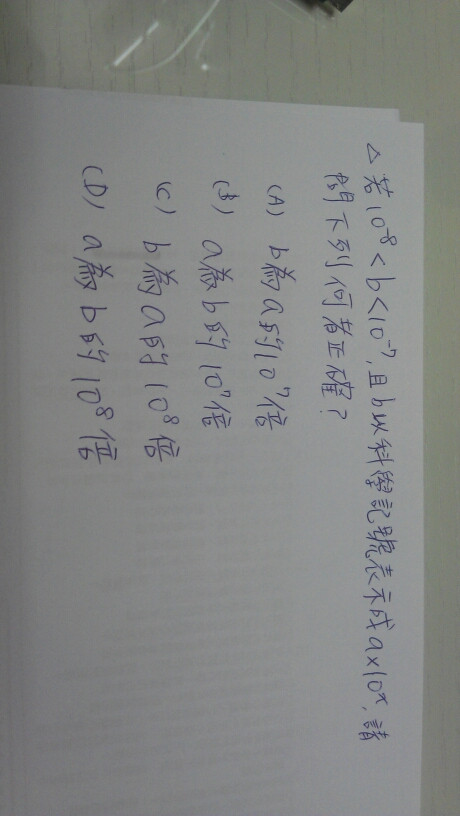 △若 10⁻⁸ < b < 10⁻⁷, 且 b 以科學記號表示成 a×10ⁿ, 請
問下列何者正確?
(A) b為a的10⁷倍
(B) a為b的10⁷倍
(C) b為a的10⁸倍
(D) a為b的10⁸倍